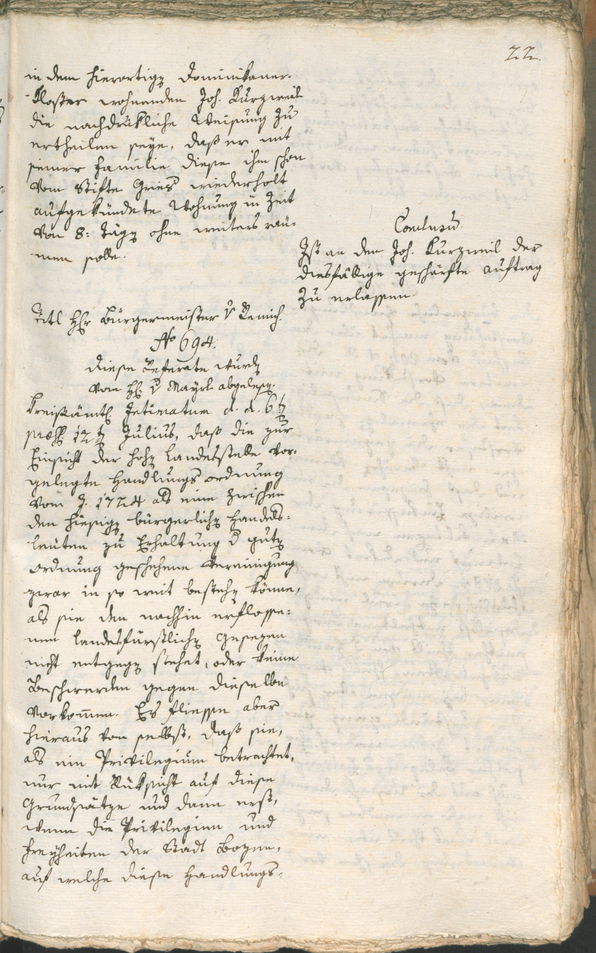 22.
in dem hierortigen Dominikaner-
kloster wohnenden Joh. Kurzweil
die nachdrükliche Weisung zu
ertheilen seye, daß er mit
seiner Familie diese ihm schon
vom Stifte Gries wiederholt
aufgekündete Wohnung in Zeit
von 8: Tägen ohne weiters räu-
men solle.
Conclusum
Ist an den Joh. Kurzweil der
diesfällige geschärfte Auftrag
zu erlassen
Titl Hr Bürgermeister v
No 694.
Diese Referate wurden
vom H: v Mayrl abgelesen.
Kreisämtl. Intimatum d. d. 6t
præs. 12t Julius, daß die zur
Einsicht der hohen Landesstelle vor-
gelegte Handlungs ordnung
vom J. 1724 als eine zwischen
den hiesigen bürgerlichen Handels-
leuten zu Erhaltung d guten
ordnung geschehene Vereinigung
zwar in so weit bestehen könne,
als sie den nachhin erflosse-
nen landesfürstlichen gesezen
nicht entgegen stehet, oder keine
Beschwerden gegen dieselbe
vorkommen. Es fliesse aber
hieraus von selbst, daß sie,
als ein Privilegium betrachtet,
nur mit Rüksicht auf diese
Grundsätze und dann erst,
wenn die Privilegien und
Freyheiten der Stadt Bozen,
auf welche diese Handlungs-